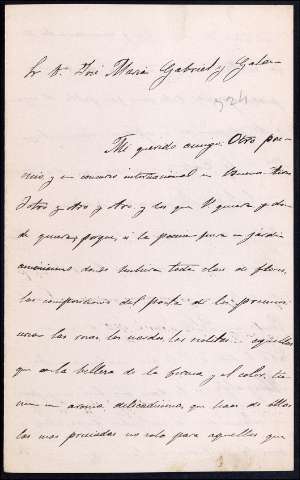 Sr. D. José Maria Gabriel y Galan
524
Mi querido amigo: Otro pre-
mio, y en concurso internacional en Buenos Aires
y otro y otro y otro, y los que V. quiera y don-
de quiera, porque, si la poesia fuera un jardin
donde hubiera toda clase de flores,
las composiciones del poeta de los premios
serian las rosas los nardos las violetas aquellas
que con la belleza de la forma y el color, tie-
nen un aroma delicadisimo, que hace de ellas
las mas preciadas no solo para aquellos que